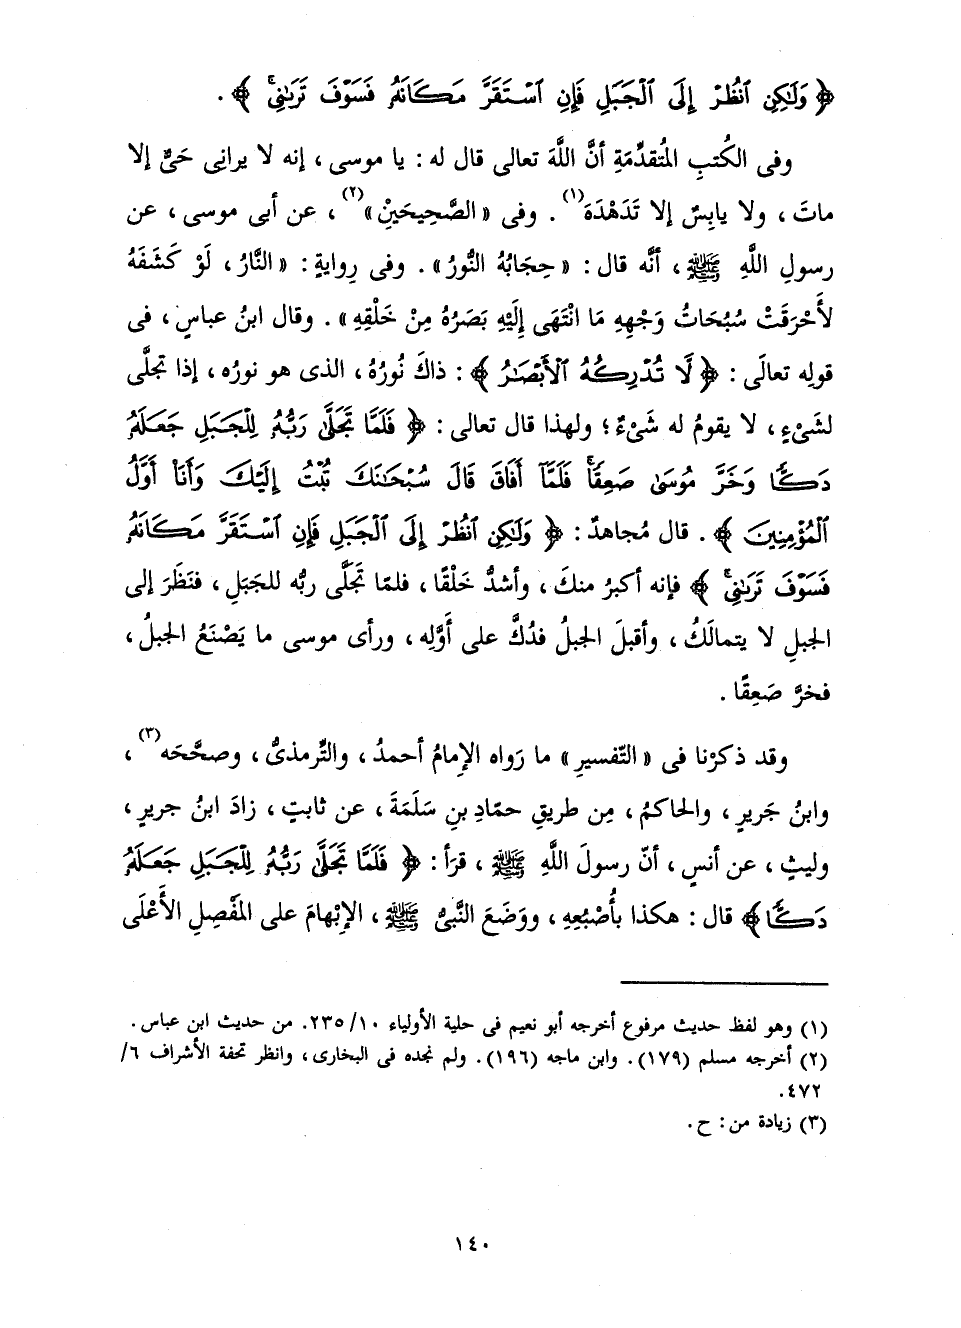 ﴿ وَلَٰكِنِ ٱنظُرْ إِلَى ٱلْجَبَلِ فَإِنِ ٱسْتَقَرَّ مَكَانَهُۥ فَسَوْفَ تَرَىٰنِىۚ ﴾ .
وفى الكُتبِ المُتقدِّمَةِ أنَّ اللَّهَ تعالى قال له : يا موسى ، إنه لا يرانِى حَىٌّ إلا
ماتَ ، ولا يابِسٌ إلا تَدَهْدَهَ(١) . وفى « الصَّحِيحَيْنِ »(٢) ، عن أبى موسى ، عن
رسولِ اللَّهِ ﷺ ، أنَّه قال : « حِجَابُهُ النُّورُ » . وفى رِوايةٍ : « النَّارُ ، لَوْ كَشَفَهُ
لأَحْرَقَتْ سُبُحَاتُ وَجْهِهِ مَا انْتَهَى إِلَيْهِ بَصَرُهُ مِنْ خَلْقِهِ » . وقال ابنُ عباسٍ ، فى
قولِه تعالَى : ﴿ لَا تُدْرِكُهُ ٱلْأَبْصَٰرُ ﴾ : ذاكَ نُورُهُ ، الذى هو نورُه ، إذا تجلَّى
لشَىْءٍ ، لا يقومُ له شَىْءٌ ؛ ولهذا قال تعالى : ﴿ فَلَمَّا تَجَلَّىٰ رَبُّهُۥ لِلْجَبَلِ جَعَلَهُۥ
دَكًّا وَخَرَّ مُوسَىٰ صَعِقًاۚ فَلَمَّآ أَفَاقَ قَالَ سُبْحَٰنَكَ تُبْتُ إِلَيْكَ وَأَنَا۠ أَوَّلُ
ٱلْمُؤْمِنِينَ ﴾ . قال مُجاهدٌ : ﴿ وَلَٰكِنِ ٱنظُرْ إِلَى ٱلْجَبَلِ فَإِنِ ٱسْتَقَرَّ مَكَانَهُۥ
فَسَوْفَ تَرَىٰنِىۚ ﴾ فإنه أكبرُ منكَ ، وأشدُّ خَلْقًا ، فلمّا تَجَلَّى ربُّه للجَبَلِ ، فنَظَرَ إلى
الجبلِ لا يتمالَكُ ، وأقبلَ الجبلُ فدُكَّ على أَوَّلِه ، ورأى موسى ما يَصْنَعُ الجبلُ ،
فخرَّ صَعِقًا .
وقد ذكرْنا فى « التّفسيرِ » ما رَواه الإمامُ أحمدُ ، والتِّرمذىُّ ، وصحَّحَه(٣) ،
وابنُ جَريرٍ ، والحاكمُ ، مِن طريقِ حمّادِ بنِ سَلَمَةَ ، عن ثابتٍ ، زادَ ابنُ جريرٍ ،
وليثٍ ، عن أنسٍ ، أنّ رسولَ اللَّهِ ﷺ ، قرَأ : ﴿ فَلَمَّا تَجَلَّىٰ رَبُّهُۥ لِلْجَبَلِ جَعَلَهُۥ
دَكًّا ﴾ قال : هكذا بأُصْبُعِهِ ، ووَضَعَ النَّبىُّ ﷺ ، الإبْهامَ على المَفْصِلِ الأَعْلَى
(١) وهو لفظ حديث مرفوع أخرجه أبو نعيم فى حلية الأولياء ١٠ / ٢٣٥. من حديث ابن عباس .
(٢) أخرجه مسلم (١٧٩) . وابن ماجه (١٩٦) . ولم نجده فى البخارى ، وانظر تحفة الأشراف ٦ /
٤٧٢ .
(٣) زيادة من : ح .
١٤٠